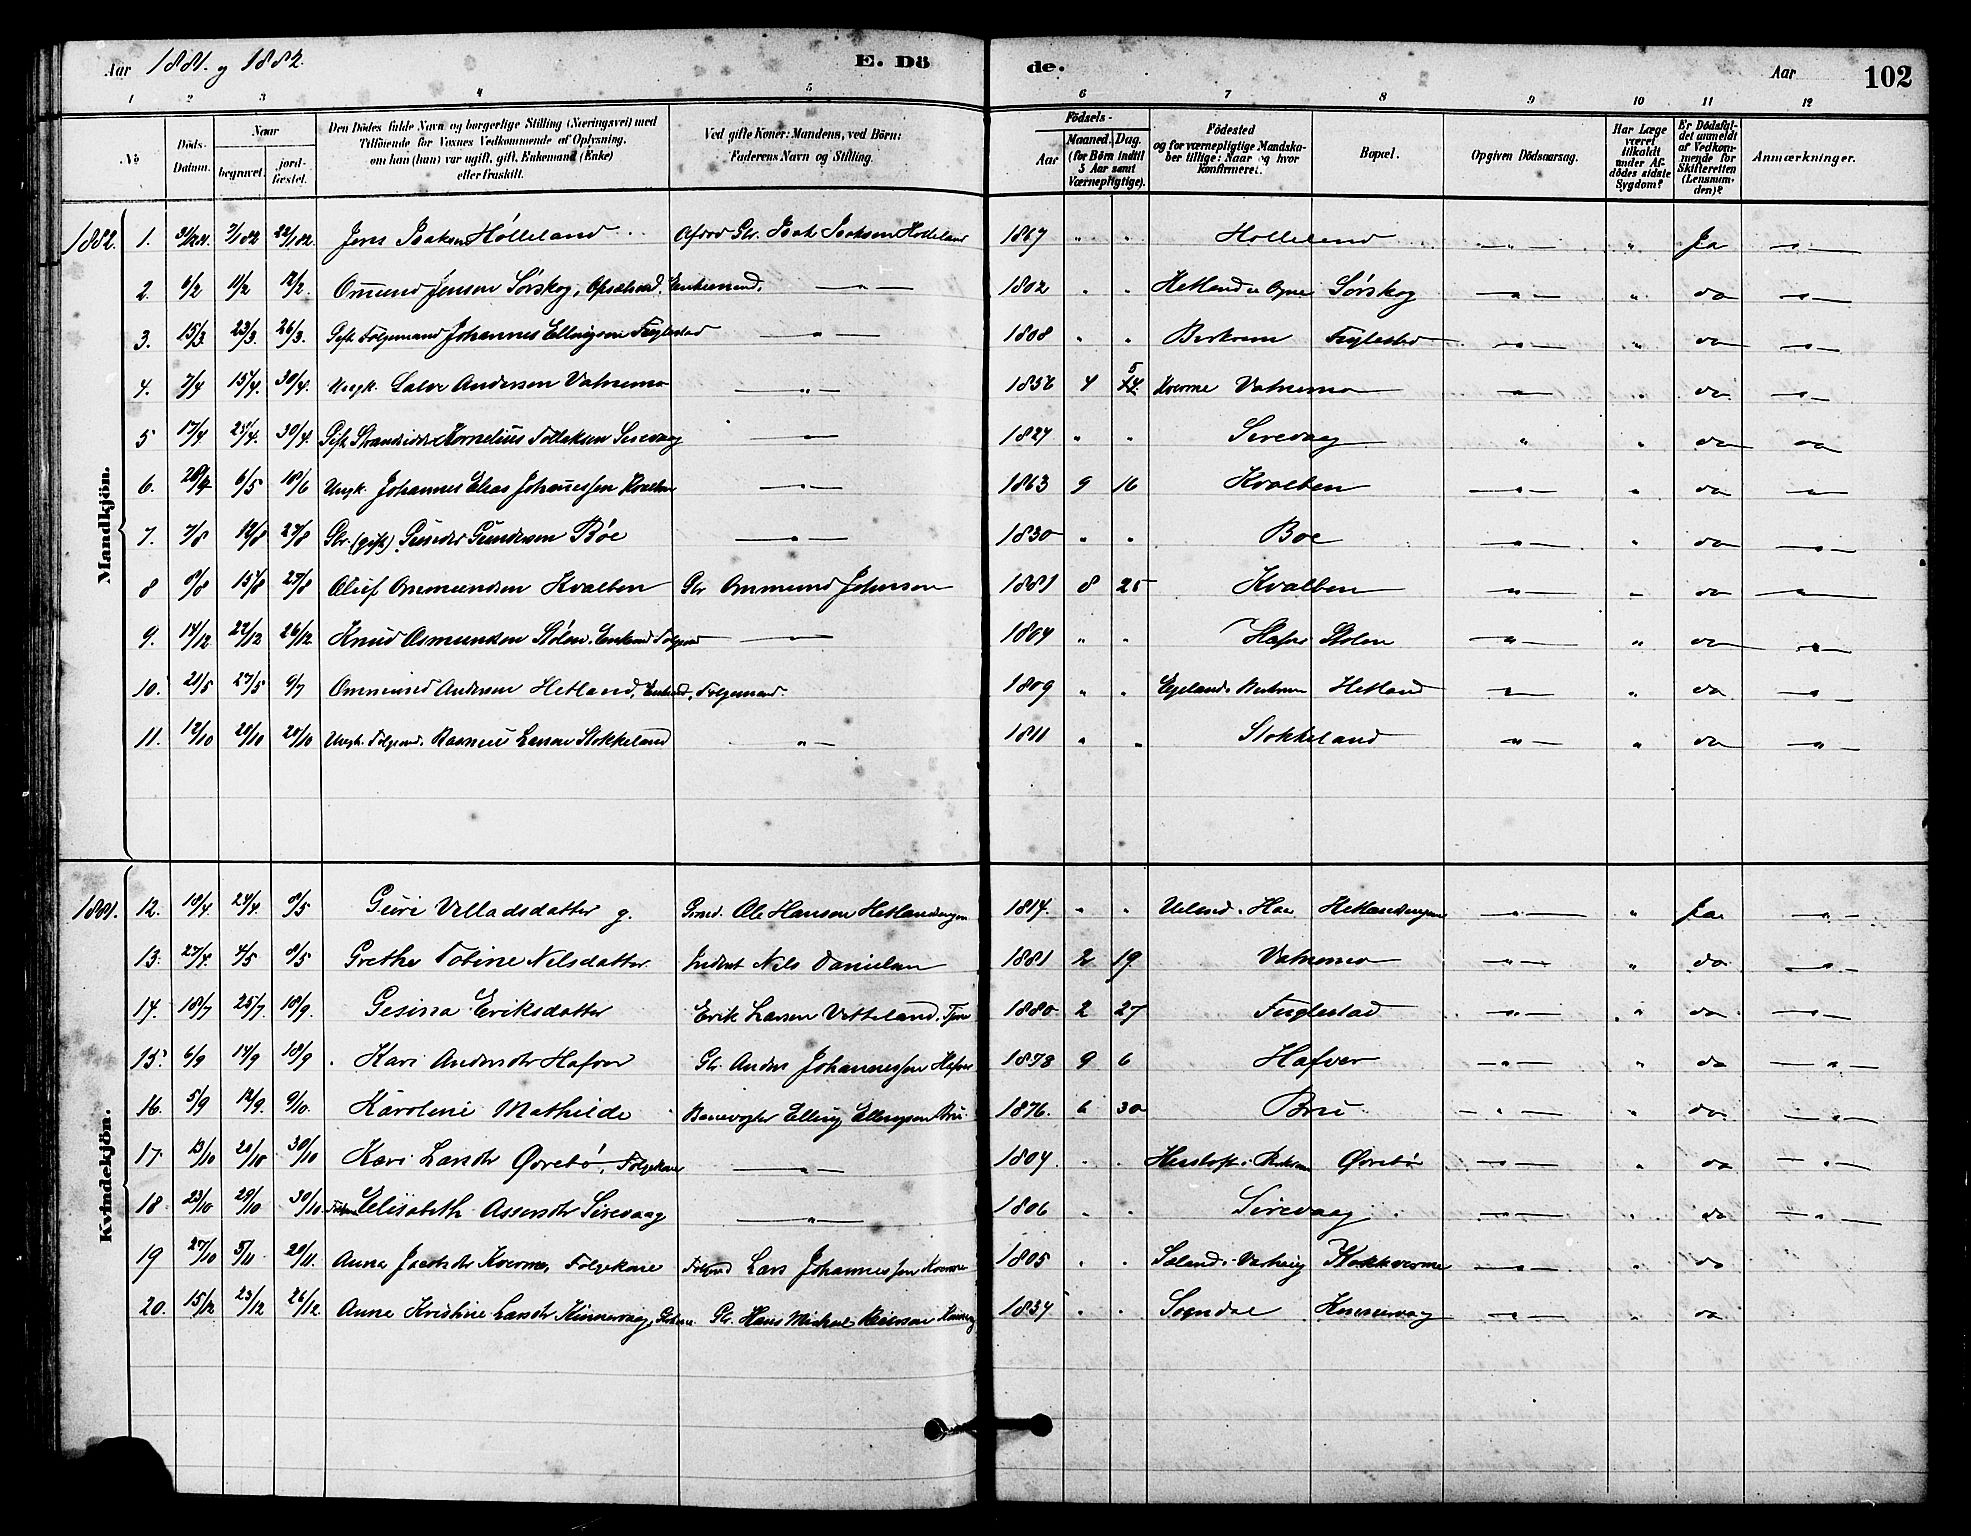 Aar 1881. og 1882. E. Döde. Aar 102
1 2 3 4 5 6 7 8 9 10 11 12
No Döds-Datum. Naar begravet. jordfæstet. Den Dödes fulde Navn og borgerlige Stilling (Næringsvei) med Tilföiende for Voxnes Vedkommende af Oplysning, om han (hun) var ugift, gift, Enkemand (Enke) eller fraskilt. Ved gifte Koner: Mandens, ved Börn: Faderens Navn og Stilling. Födsels- Aar Maaned. Dag. (for Börn indtil 5 Aar samt Værnepligtige). Födested og for værnepligtige Mandskaber tillige: Naar og hvor konfirmeret. Bopæl. Opgiven Dödsaarsag. Har Læge været tilkaldt under Afdödes sidste Sygdom? Er Dödsfaldet anmeldt af Vedkommende for Skifteretten (Lensmanden)? Anmærkninger.
Mandkjön.
1882. 1. 31/12 81. 7/1 82 22/1 82. Jens Isaksen Hölleland Isak Isaksen 1867 " " Holleland " Ja
2. 6/2 11/2 12/2. Omund Jensen Sörskog, Enkemand. " 1802 " " Hetland i Ogne Sörskog " " do "
3. 15/3 23/3. 26/3. Gift Folgemand Johannes Ellingsen Fuglestad " 1808 " " Berkrem Fuglestad " " do "
4. 7/4 15/4. 30/4. Ungk. Salve Andersen Vatnemo " 1856 4 5 Kverme Vatnemo " " do "
5 17/4 23/4. 30/4. Gift Strandsidder Kornelius Tollaksen Sirevaag " 1827 " " Sirevaag " " do do
6. 28/4 6/5 18/6 Ungk. Johannes Elias Johannessen Kvalben " 1863 9 16 Kvalben " " do "
7. 7/8 12/8 27/8 Gbr. (gift) Gunder Gundersen Böe " 1830 " " Boe " " do "
8 8/8 15/8 27/8 Oluf Ommundsen Kvalben Gbr Ommund Johnsen 1881 8 25 Kvalben " " do "
9. 14/12 22/12 26/12 Knud Osmundsen Stölen, " 1804 " " Hafver Stolen " " do "
10. 21/5 27/5 9/7 Ommund Andersen Hetland, Folgemand " 1809 " " Egeland i Berkrem Hetland " " do "
11. 12/10 20/10 20/10 Ungk. Folgemd. Rasmus Larsen Stokkeland " 1811 " " Stokkeland " " do "
Kvindekjön.
1881. 12. 19/4. 24/4. 8/5 Guri Villadsdatter g. Ole Hansen 1814. " " Ueland i Haa " " Ja "
13. 27/4. 4/5 8/5 Grethe Tobine Nilsdatter Inderst Nils Danielsen 1881 2 19 Vatnemo " " do "
14. 18/7 25/7 18/9. Gesina Eriksdatter Erik Larsen 1880 2 27 Fuglestad " " do "
15. 6/9 14/9 18/9 Kari Andersdtr Hafver Gbr. Anders Johannessen Hafver 1878 9 6 Hafver " " do "
16. 5/9 12/9. 9/10. Karoline Mathilde Banevogter Elling Ellingsen Bru 1876. 6 30 Bru " do "
17. 13/10 20/10 30/10 Kari Larsdtr Örebö, Folgekone " 1804. " " Örebö " " do "
18 23/10 29/10 30/10 Elisabeth Assersdtr Sirevaag " 1806 " " Sirevaag " " do "
19 27/10 5/11 20/11. Anna Jacobsdr Kverme, Folgekone Lars Johannessen Kverme 1805 " " " " do
20. 15/12 23/12 26/12. Anne Kristine Larsdtr Kinnervaag, Gbr. Hans Michael 1834 " " Sogndal Kinnervaag " " do